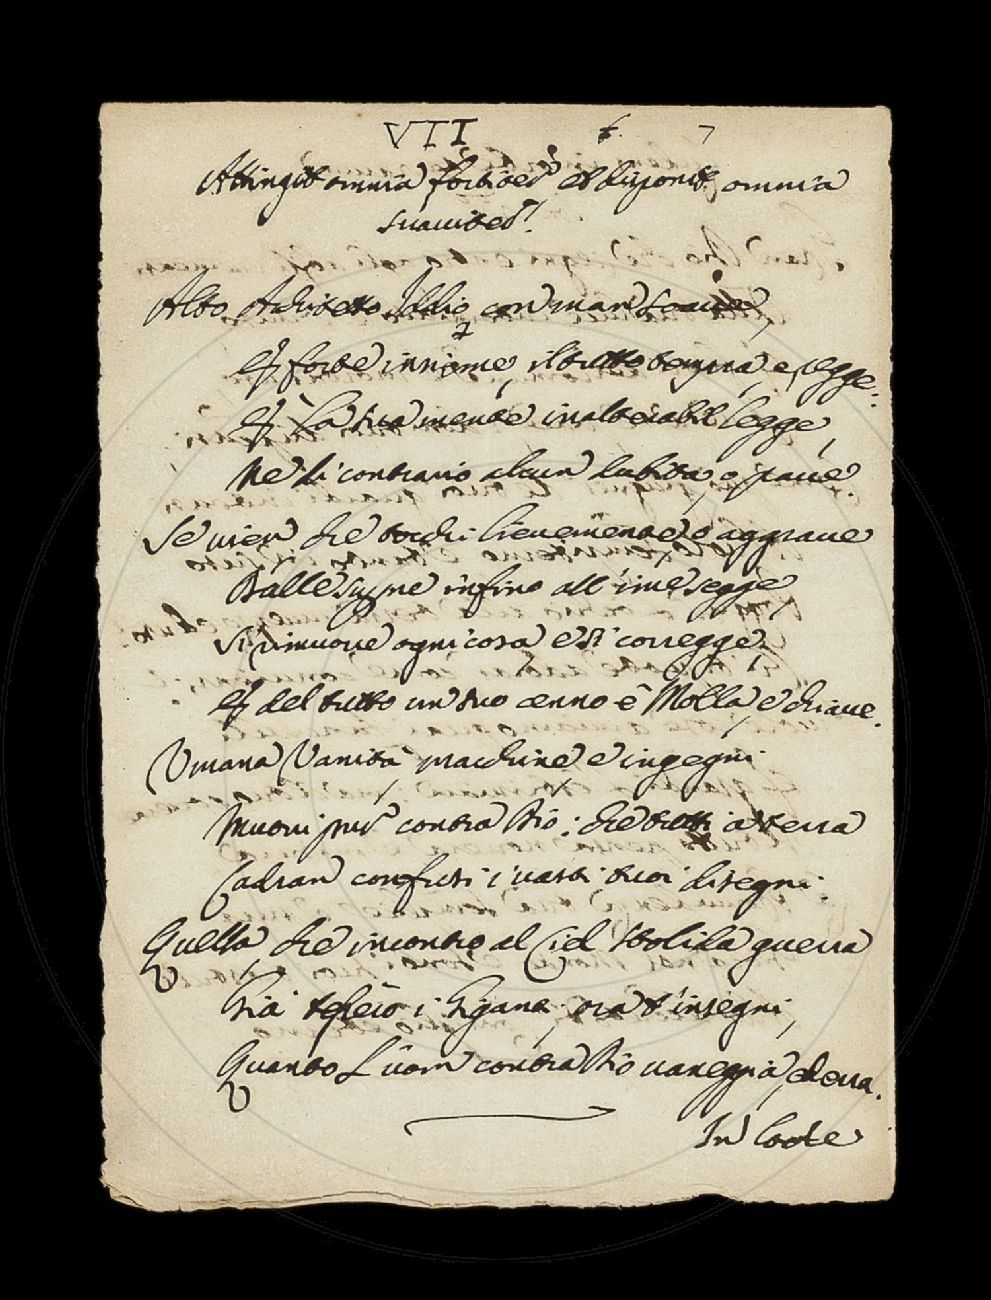 VII 6. 7
Attingit omnia fortiter, et disponit omnia
suauiter.
Alto Architetto Iddio con man soaue,
E forte insieme, il tutto tempra, e regge:
E la tua mente inalterabil legge,
Ne di contrario alcun dubita, o paue.
Se uien che tocchi lieuemente, o aggraue
Dalle supne infino all' ime segge,
Si rimuoue ogni cosa e si corregge;
E del tutto un tuo cenno è Molla, e chiaue.
Umana Vanità, macchine, e ingegni
Muoui pur contra Dio: che tutti a terra
Cadran confusi i uasti tuoi disegni.
Quella, che incontro al Ciel stolida guerra
Già i Giganti, ora t'insegni,
Quanto l'uom contra Dio uaneggia, ed erra.
In Lode